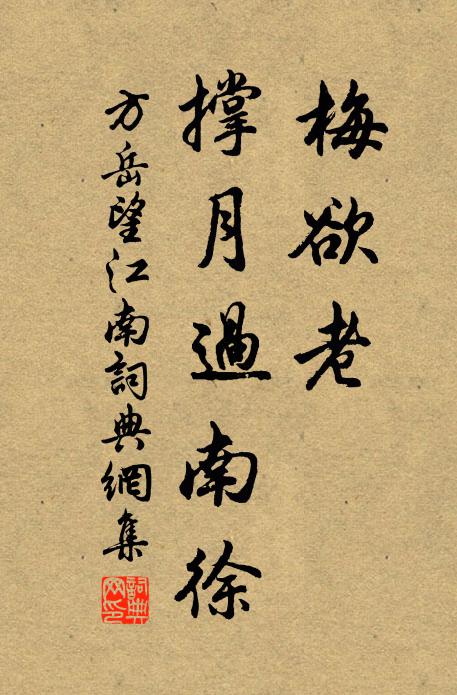 梅欲老
撐月過南徐
方岳望江南詞典網集
詞典網印